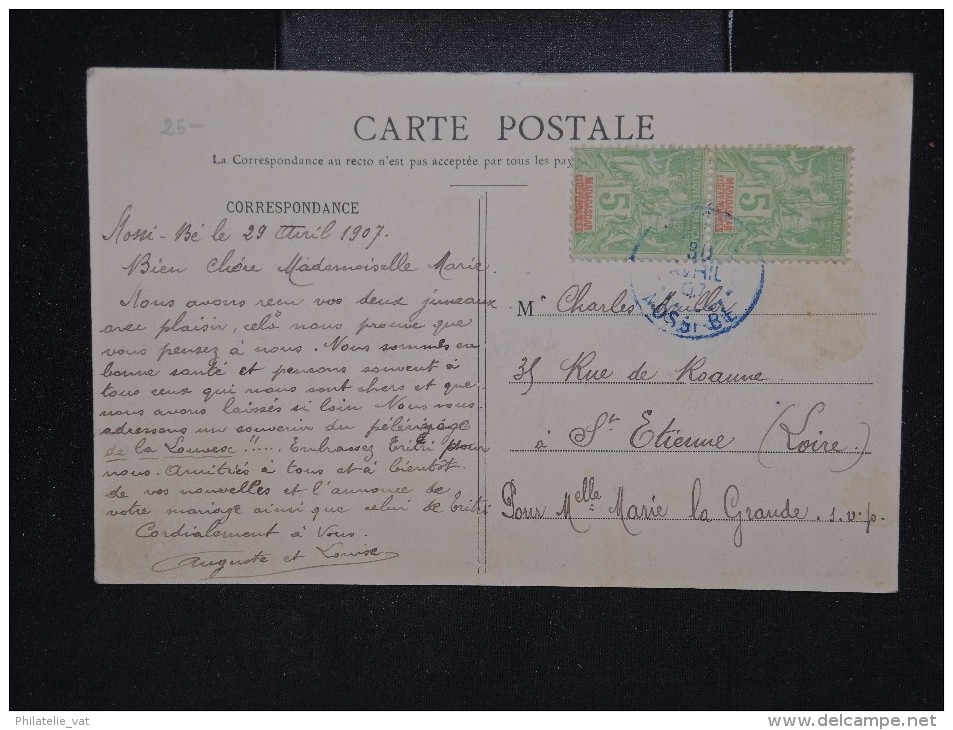 25-
CARTE POSTALE
La Correspondance au recto n'est pas acceptée par tous les pay
CORRESPONDANCE
Nossi-Bé le 29 Avril 1907.
Bien Chère Mademoiselle Marie.
Nous avons reçu vos deux jumeaux
avec plaisir, celà nous prouve que
vous pensez à nous. Nous sommes en
bonne santé et pensons souvent à
tous ceux qui nous sont chers et que
nous avons laissés si loin Nous vous
adressons un souvenir du pélérinage
de la Louvesc!!..... Embrassez Titi pour
nous. Amitiés à tous et à bientôt
de vos nouvelles et l'annonce de
votre mariage ainsi que celui de Titi
Cordialement à Vous.
Auguste et Louise
MADAGASCAR
5
MADAGASCAR
5
30
AVRIL
07
NOSSI-BÉ
M Charles
35 Rue de Roanne
à St Etienne (Loire)
Pour Melle Marie la Grande. s.v.p.
Philatelie_vat
www.delcampe.net